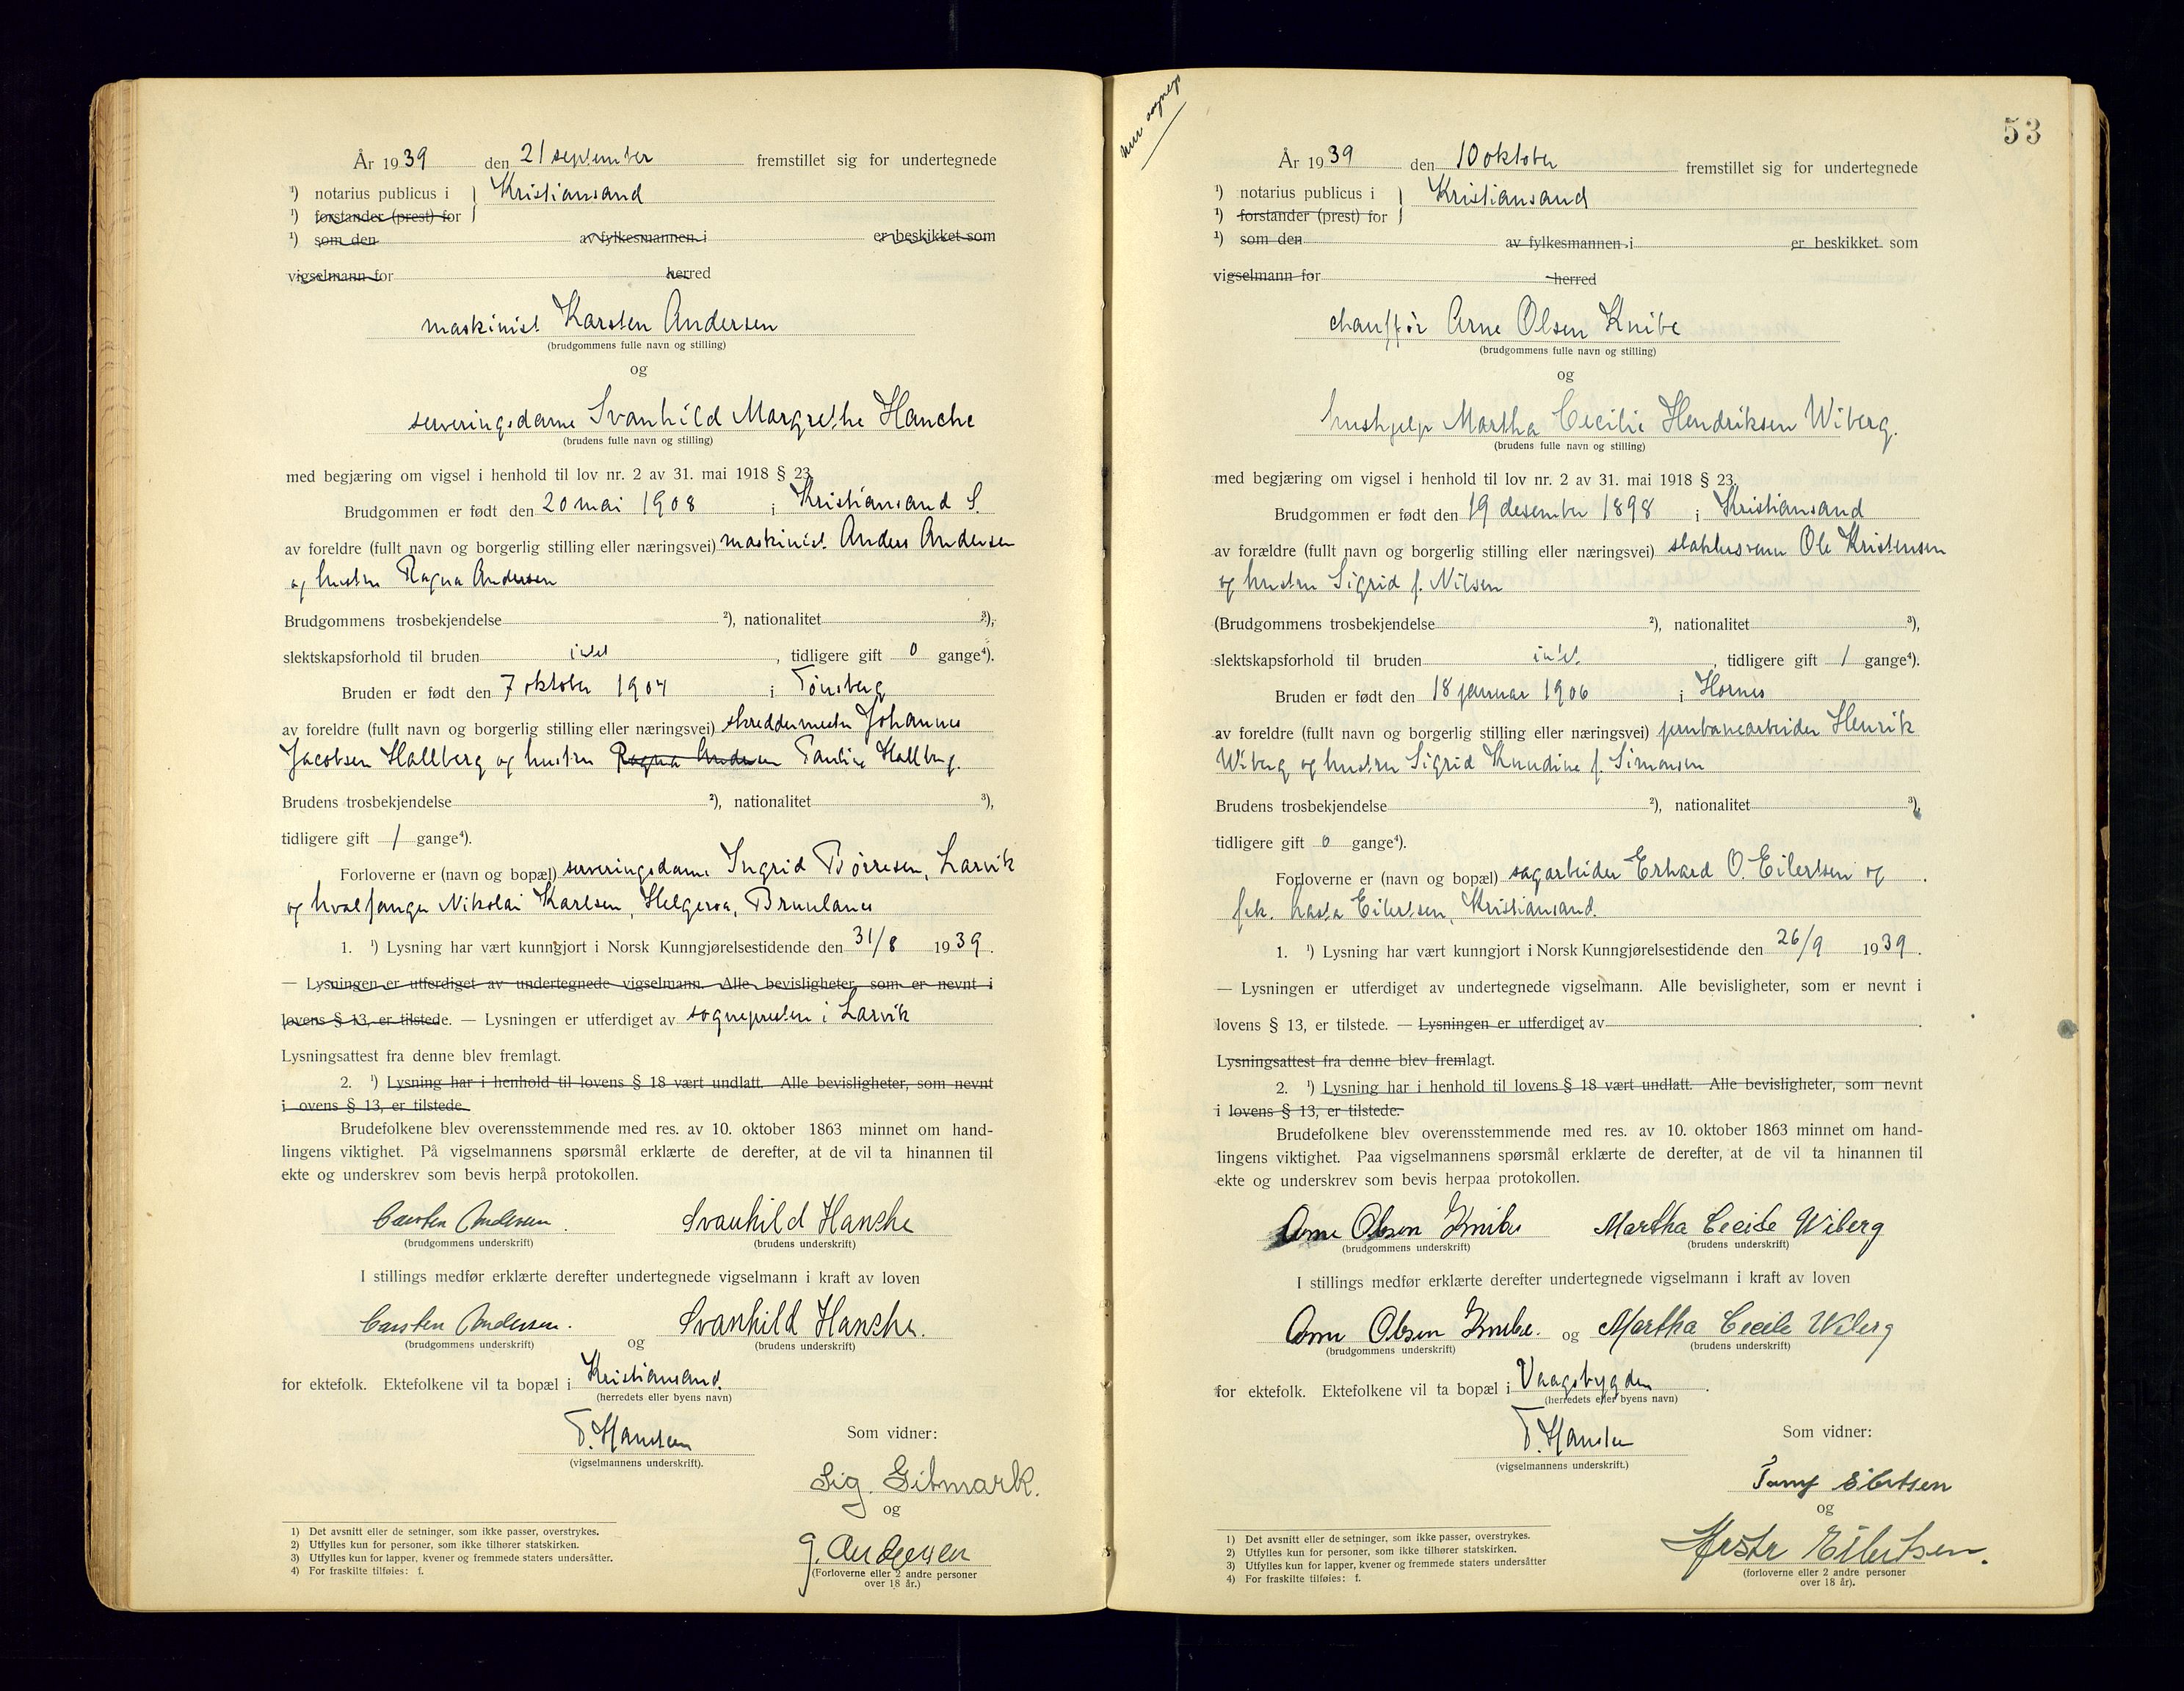 År 1939 den 21 september fremstillet sig for undertegnede
¹) notarius publicus i } Kristiansand
¹) forstander (prest) for
¹) som den av fylkesmannen i er beskikket som
vigselmann for herred
maskinist Karsten Andersen
(brudgommens fulle navn og stilling)
og
serveringsdame Svanhild Margrethe Hanche
(brudens fulle navn og stilling)
med begjæring om vigsel i henhold til lov nr. 2 av 31. mai 1918 § 23.
Brudgommen er født den 20 mai 1908 i Kristiansand S.
av foreldre (fullt navn og borgerlig stilling eller næringsvei) maskinist Anders Andersen
og hustru Ragna Andersen
Brudgommens trosbekjendelse ²), nationalitet ³),
slektskapsforhold til bruden intet, tidligere gift 0 gange⁴).
Bruden er født den 7 oktober 1904 i Tønsberg
av foreldre (fullt navn og borgerlig stilling eller næringsvei) skreddermester Johannes
Jacobsen Hallberg og hustru Ragna Andersen Pauline Hallberg.
Brudens trosbekjendelse ²), nationalitet ³),
tidligere gift 1 gange⁴).
Forloverne er (navn og bopæl) serveringsdame Ingrid Børresen, Larvik
og hvalfanger Nikolai Karlsen, Helgeroa, Brunlanes
1. ¹) Lysning har vært kunngjort i Norsk Kunngjørelsestidende den 31/8 1939.
— Lysningen er utferdiget av undertegnede vigselmann. Alle bevisligheter, som er nevnt i
lovens § 13, er tilstede. — Lysningen er utferdiget av sognepresten i Larvik
Lysningsattest fra denne blev fremlagt.
2. ¹) Lysning har i henhold til lovens § 18 vært undlatt. Alle bevisligheter, som nevnt
i ovens § 13, er tilstede.
Brudefolkene blev overensstemmende med res. av 10. oktober 1863 minnet om hand-
lingens viktighet. På vigselmannens spørsmål erklærte de derefter, at de vil ta hinannen til
ekte og underskrev som bevis herpå protokollen.
Carsten Andersen. Svanhild Hanche
(brudgommens underskrift) (brudens underskrift)
I stillings medfør erklærte derefter undertegnede vigselmann i kraft av loven
Carsten Andersen. og Svanhild Hanche.
(brudgommens underskrift) (brudens underskrift)
for ektefolk. Ektefolkene vil ta bopæl i Kristiansand.
(herredets eller byens navn)
T. Hansen
(vigselmannens underskrift).
Som vidner:
Sig. Gitmark.
og
G. Andersen
(Forloverne eller 2 andre personer
over 18 år.)
1) Det avsnitt eller de setninger, som ikke passer, overstrykes.
2) Utfylles kun for personer, som ikke tilhører statskirken.
3) Utfylles kun for lapper, kvener og fremmede staters undersåtter.
4) For fraskilte tilføies: f.
53
År 1939 den 10 oktober fremstillet sig for undertegnede
¹) notarius publicus i } Kristiansand
¹) forstander (prest) for
¹) som den av fylkesmannen i er beskikket som
vigselmann for herred
chauffør Arne Olsen Knibe
(brudgommens fulle navn og stilling)
og
hushjelp Martha Cecilie Hendriksen Wiberg.
(brudens fulle navn og stilling)
med begjæring om vigsel i henhold til lov nr. 2 av 31. mai 1918 § 23.
Brudgommen er født den 19 desember 1898 i Kristiansand
av forældre (fullt navn og borgerlig stilling eller næringsvei) slaktersvenn Ole Kristensen
og hustru Sigrid f. Nilsen
(Brudgommens trosbekjendelse ²), nationalitet ³),
slektskapsforhold til bruden intet, tidligere gift 1 gange⁴).
Bruden er født den 18 januar 1906 i Hornes
av foreldre (fullt navn og borgerlig stilling eller næringsvei) jernbanearbeider Henrik
Wiberg og hustru Sigrid Knudine f. Simonsen
Brudens trosbekjendelse ²), nationalitet ³),
tidligere gift 0 gange⁴).
Forloverne er (navn og bopæl) sagarbeider Erhard O. Eilertsen og
frk. Eilertsen, Kristiansand.
1. ¹) Lysning har vært kunngjort i Norsk Kunngjørelsestidende den 26/9 1939.
— Lysningen er utferdiget av undertegnede vigselmann. Alle bevisligheter, som er nevnt i
lovens § 13, er tilstede. — Lysningen er utferdiget av
Lysningsattest fra denne blev fremlagt.
2. ¹) Lysning har i henhold til lovens § 18 vært undlatt. Alle bevisligheter, som nevnt
i lovens § 13, er tilstede.
Brudefolkene blev overensstemmende med res. av 10. oktober 1863 minnet om hand-
lingens viktighet. Paa vigselmannens spørsmål erklærte de derefter, at de vil ta hinannen til
ekte og underskrev som bevis herpaa protokollen.
Arne Olsen Knibe Martha Cecilie Wiberg
(brudgommens underskrift) (brudens underskrift)
I stillings medfør erklærte derefter undertegnede vigselmann i kraft av loven
Arne Olsen Knibe. og Martha Cecilie Wiberg
(brudgommens underskrift) (brudens underskrift)
for ektefolk. Ektefolkene vil ta bopæl i Vaagsbygden.
(herredets eller byens navn)
T. Hansen
(vigselmannens underskrift.)
Som vidner:
Eilertsen
og
Eilertsen.
(forloverne eller 2 andre personer
over 18 år).
1) Det avsnitt eller de setninger, som ikke passer, overstrykes.
2) Utfylles kun for personer, som ikke tilhører statskirken.
3) Utfylles kun for lapper, kvener og fremmede staters undersåtter
4) For fraskilte tilføies: f.